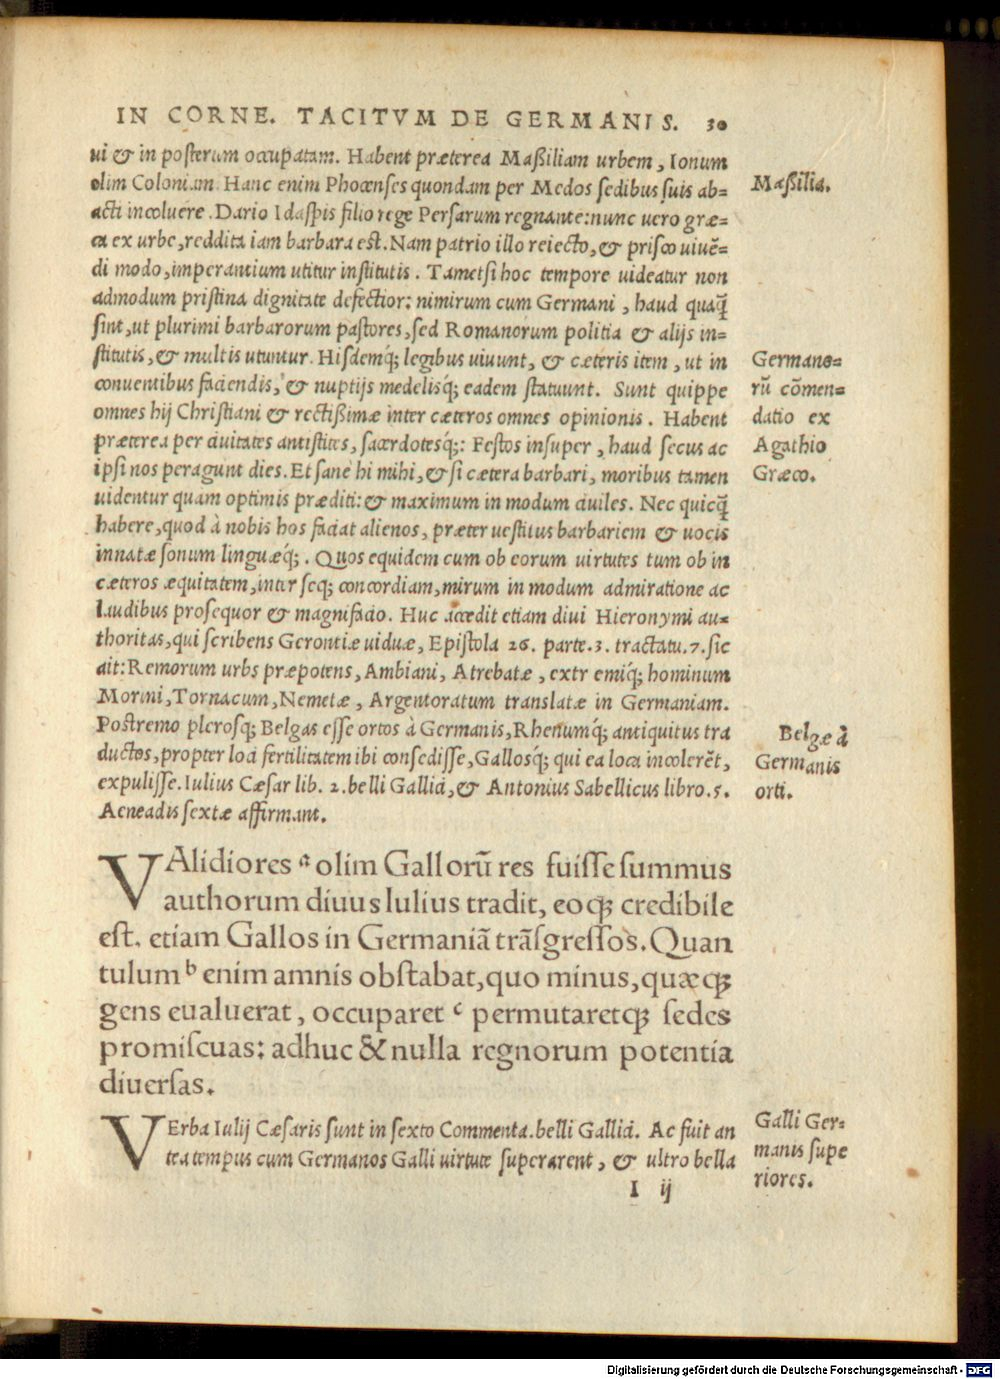 IN CORNE. TACITVM DE GERMANIS. 30
ui & in posterum occupatam. Habent præterea Maßiliam urbem, Ionum
olim Coloniam. Hanc enim Phocenses quondam per Medos sedibus suis ab=
acti incoluere. Dario Idaspis filio rege Persarum regnante: nunc uero græ=
ca ex urbe, reddita iam barbara est. Nam patrio illo reiecto, & prisco uiuē=
di modo, imperantium utitur institutis. Tametsi hoc tempore uideatur non
admodum pristina dignitate defectior: nimirum cum Germani, haud quaq̃
sint, ut plurimi barbarorum pastores, sed Romanorum politia & alijs in=
stitutis, & multis utuntur. Hisdemq́; legibus uiuunt, & cæteris item, ut in
conuentibus faciendis, & nuptijs medelisq́; eadem statuunt. Sunt quippe
omnes hij Christiani & rectißimæ inter cæteros omnes opinionis. Habent
præterea per ciuitates antistites, sacerdotesq́;: Festos insuper, haud secus ac
ipsi nos peragunt dies. Et sane hi mihi, & si cætera barbari, moribus tamen
uidentur quam optimis præditi: & maximum in modum ciuiles. Nec quicq̃
habere, quod à nobis hos faciat alienos, præter uestitus barbariem & uocis
innatæ sonum linguæq́;. Quos equidem cum ob eorum uirtutes tum ob in
cæteros æquitatem, inter seq; concordiam, mirum in modum admiratione ac
laudibus prosequor & magnifacio. Huc accedit etiam diui Hieronymi au=
thoritas, qui scribens Gerontiæ uiduæ, Epistola 26. parte.3. tractatu.7. sic
ait: Remorum urbs præpotens, Ambiani, Atrebatæ, extremiq́; hominum
Morini, Tornacum, Nemetæ, Argentoratum translatæ in Germaniam.
Postremo plerosq; Belgas esse ortos à Germanis, Rhenumq́; antiquitus tra
ductos, propter loci fertilitatem ibi consedisse, Gallosq́; qui ea loca incolerēt,
expulisse. Iulius Cæsar lib. 2. belli Gallici, & Antonius Sabellicus libro.5.
Aeneadis sextæ affirmant.
Maßilia.
Germano=
rū cōmen=
datio ex
Agathio
Græco.
Belgæ à
Germanis
orti.
VAlidiores ᵃ olim Gallorū res fuisse summus
authorum diuus Iulius tradit, eoq; credibile
est. etiam Gallos in Germaniā trāsgressos. Quan
tulum ᵇ enim amnis obstabat, quo minus, quæq;
gens eualuerat, occuparet ᶜ permutaretq; sedes
promiscuas: adhuc & nulla regnorum potentia
diuersas.
VErba Iulij Cæsaris sunt in sexto Commenta. belli Gallici. Ac fuit an
tea tempus cum Germanos Galli uirtute superarent, & ultro bella
Galli Ger=
manis supe
riores.
I ij
Digitalisierung gefördert durch die Deutsche Forschungsgemeinschaft - DFG